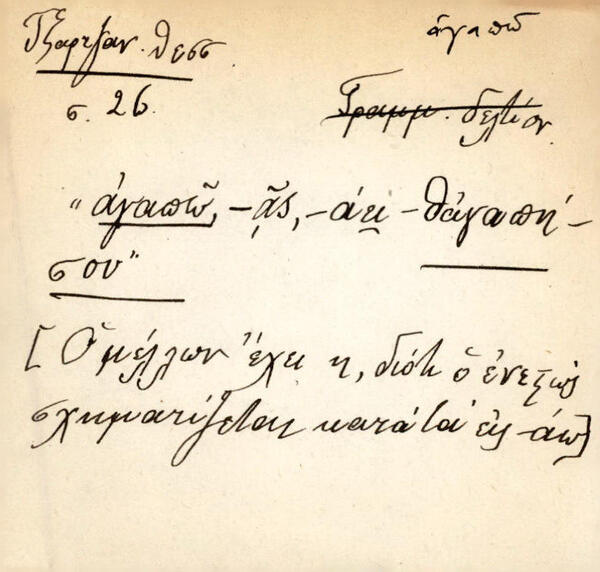 Τζαρτζάν. Θεσσ
ἀγαπῶ
σ. 26.
Γραμμ. δελτίον
"ἀγαπῶ, -ᾷς, -άει -θἀγαπή-
σου"
[Ὁ μέλλων ἔχει η, διότι ὁ ἐνεστὼς
σχηματίζεται κατὰ τὰ εἰς -άω]